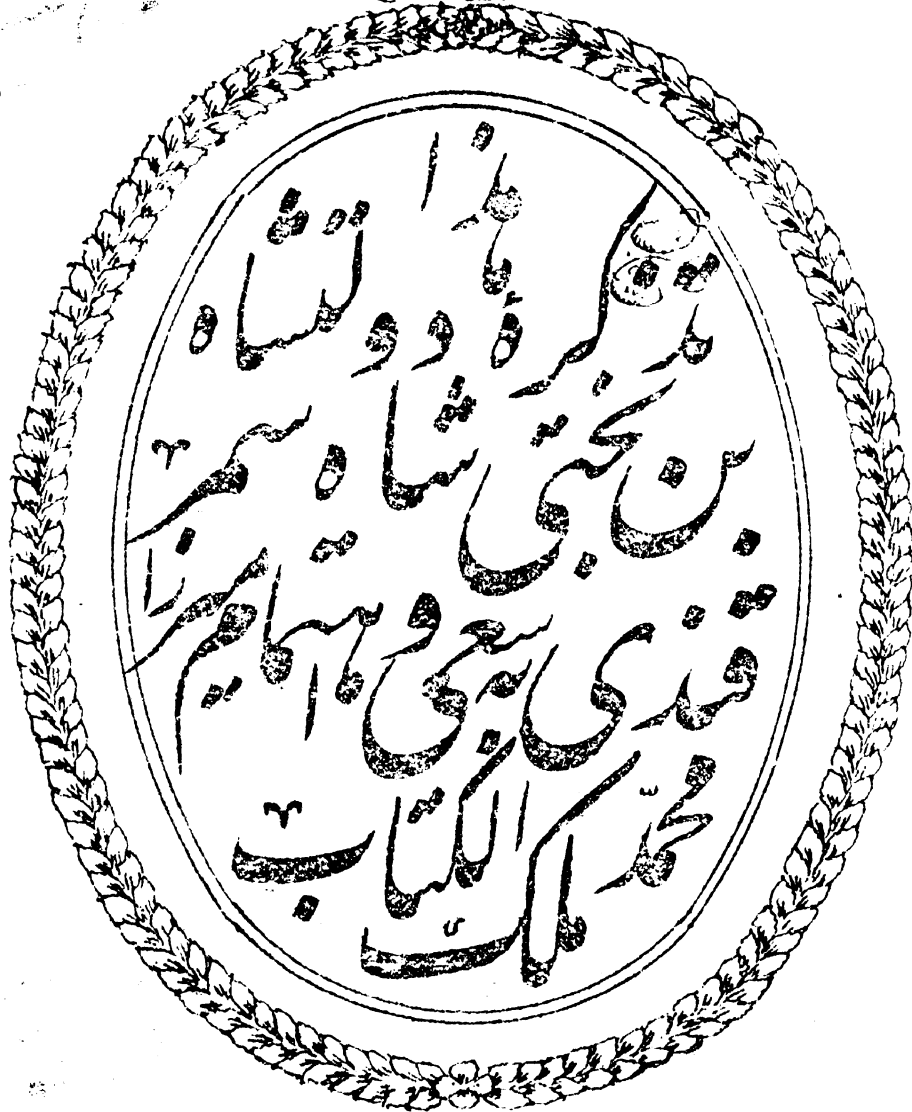 هذا
تذکرۀ دولتشاه
بن بختی شاه سمر
قندی بسعی و اهتمام میرزا
محمّد ملک الکتاب